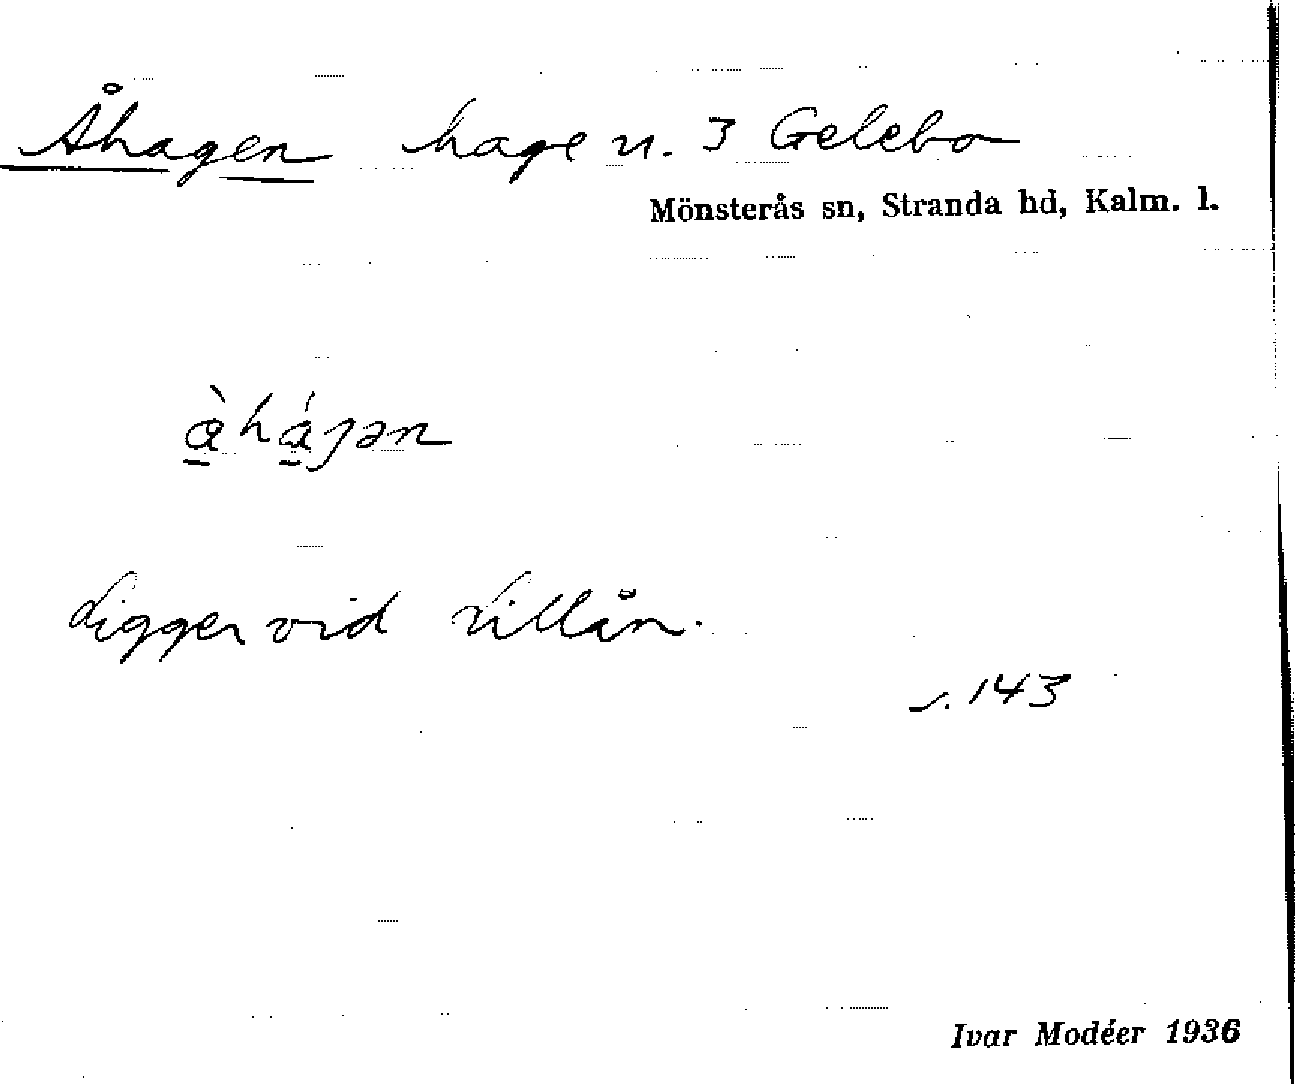 Åhagen hage u. 3 Gelebo
Mönsterås sn, Stranda hd, Kalm. l.
Ligger vid Lillån.
s. 143
Ivar Modéer 1936